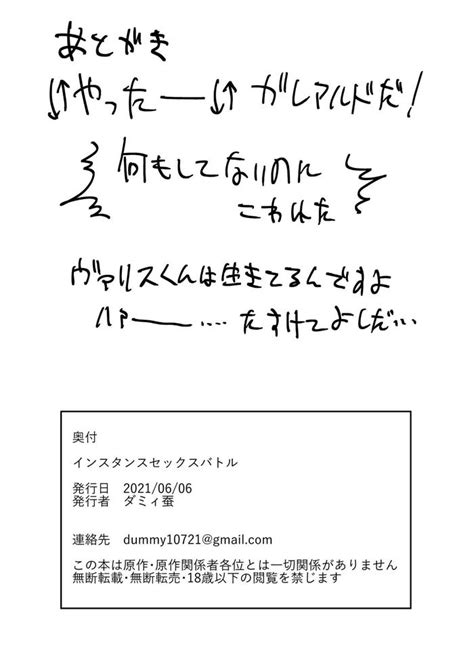 あとがき
↓↑やったー↓↑ ガレアルドだ!
何もしてないのに
こわれた
ヴァリスくんは生きてるんですよ
ハァー‥‥たすけてよしだ‥
奥付
インスタンスセックスバトル
発行日 2021/06/06
発行者 ダミィ蚕
連絡先 dummy10721@gmail.com
この本は原作・原作関係者各位とは一切関係がありません
無断転載・無断転売・18歳以下の閲覧を禁じます